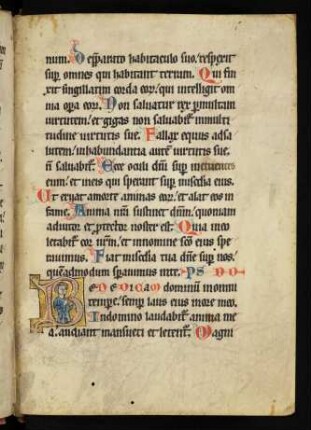 num. De p̄parato habitaculo suo, respexit
sup̄ omnes qui habitant terram. Qui fin
xit singillatim corda eoꝝ, qui intelligit om
nia opa eoꝝ. Non saluatur rex p̄ multam
uirtutem, et gigas non saluabit᷑ in multi
tudine uirtutis sue. Fallax equus ad sa
lutem, in habundantia autē uirtutis sue
n̄ saluabit᷑. Ecce oculi dn̄i sup̄ metuentes
eum, et in eis qui sperant sup̄ misc̄dia eius.
Ut eruat a morte animas eoꝝ, et alat eos in
fame. Anima nr̄a sustinet dn̄m, quoniam
adiutor et ꝓtector noster est. Quia in eo
letabit᷑ cor nr̄m, et in nomine sc̄o eius spe
rauimus. Fiat misc̄dia tua dn̄e sup̄ nos,
quēadmodum sperauimus in te. PS DD
BENEDICAM dominū in omni
tempe, semp̄ laus eius in ore meo.
In domino laudabit᷑ anima me
a, audiant mansueti et letent᷑. Magni